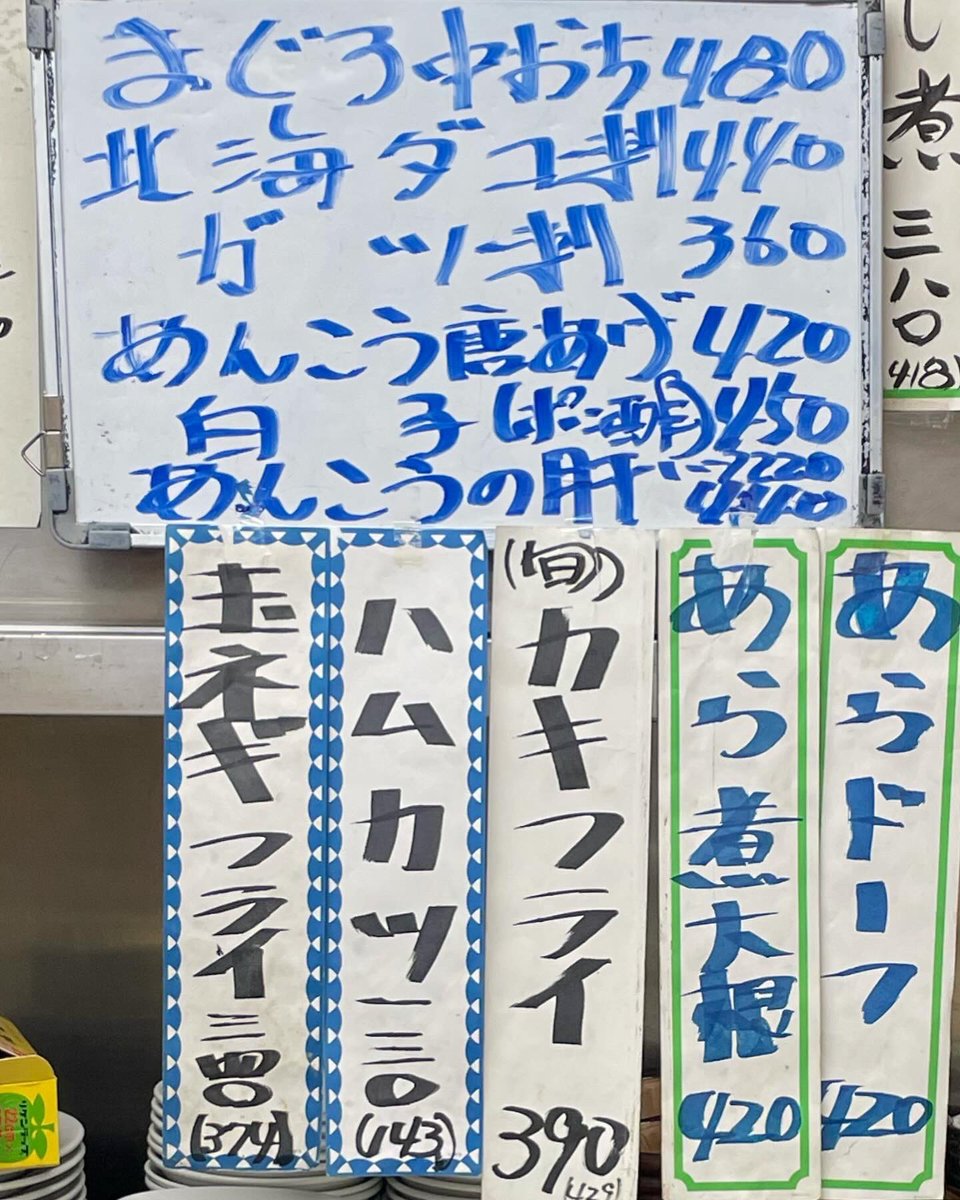 まぐろ中おち480
北海ダコ刺440
ガツ刺360
めんこう唐あげ420
白子(ポン酢)450
めんこうの肝
し煮 三八〇
(418)
玉ネギフライ三四〇
(374)
ハムカツ一三〇
(143)
(旬)カキフライ
390
(429)
あら煮大根
420
あらドーフ
420